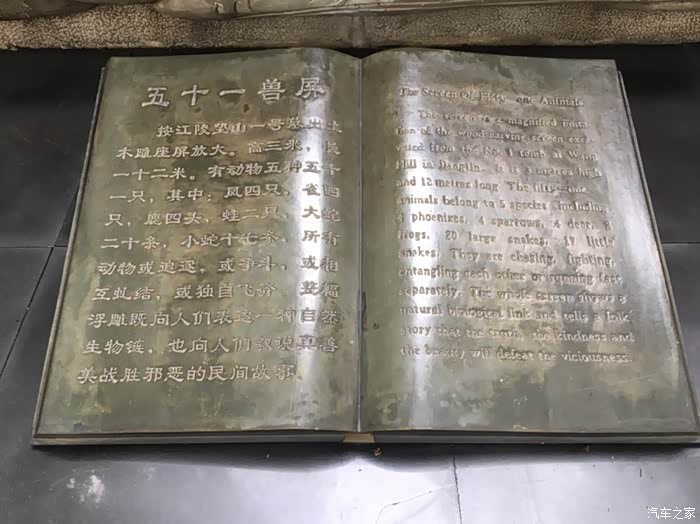 五十一兽屏
按江陵望山一号墓出土
木雕座屏放大。高三米，长
一十二米。有动物五种五十
一只，其中：凤四只，雀四
只，鹿四头，蛙二只，大蛇
二十条，小蛇十七条，所有
动物或追逐，或争斗，或相
互虬结，或独自飞奔，整幅
浮雕既向人们表达一种自然
生物链，也向人们叙说真善
美战胜邪恶的民间故事。
The Screen Of Fifty-one Animals
The screen is a magnified imita-
tion of the wood carving screen exca-
vated from the No.1 tomb at Wang
Hill in Jiangling. It is 3 metres high
and 12 metres long The fifty-one
animals belong to 5 species including
4 phoenixes, 4 sparrows, 4 deer,
frogs, 20 large snakes, 17 little
snakes. They are chasing, fighting,
entangling each other or running
separately. The whole screen shows a
natural biological link and tells a folk
story that the truth, the kindness and
the beauty will defeat the viciousness.
汽车之家